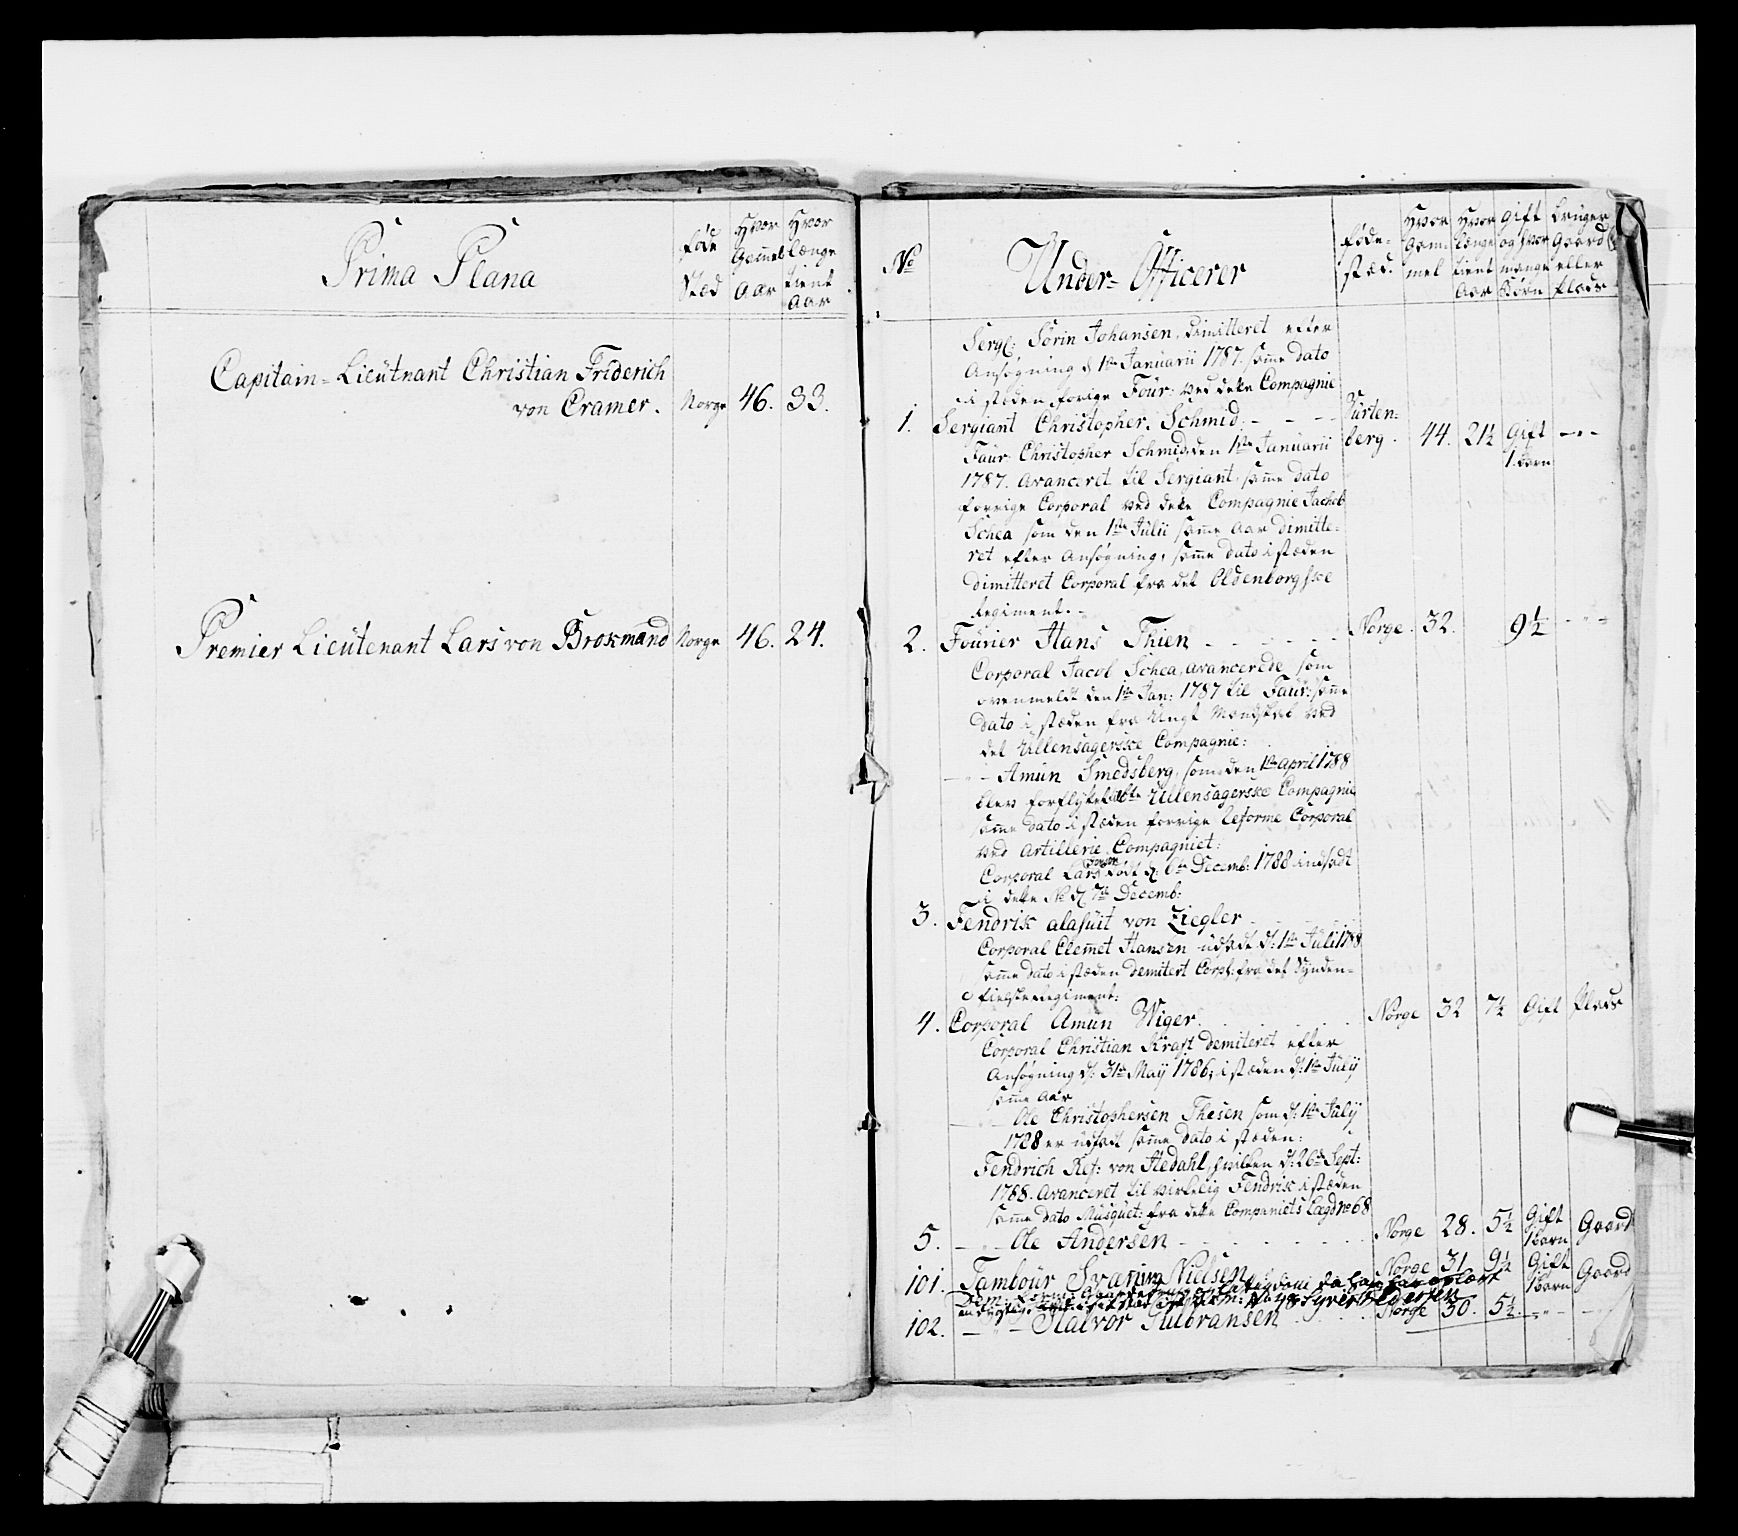 Prima Plana
føde Stæd
Hvor Gamel Aar
Hvor længe tient Aar
Capitain-Lieutnant Christian Friderich
von Cramer. Norge 46. 33.
Premier Lieutenant Lars von Brokmand Norge 46. 24.
No
Under-Officerer
føde-stæd.
Hvor Gammel
Hvor længe tient Aar
gift og hvor mange Børn
bruger Gaard eller Plads
Serg: Sørin Johansen, Dimitteret efter
Ansøgning d 1te Januarii 1787. samme dato
i stæden forige Four: ved dette Compagnie
1. Sergiant Christopher Schmid. - - - Vürten-
berg. 44. 21½ Gift - " -
1. barn
Faur: Christopher Schmid, den 1te Januarii
1787. avanceret til Sergiant, samme dato
forrige Corporal ved dette Compagnie Jachob
Schea som den 1te Julii samme Aar dimitte-
ret efter Ansøgning, samme dato i stæden
dimitteret Corporal fra det Oldenborgske
Regiment. -
2. Fourier Hans Thien - - - - - Norge. 32. 9½ - " -
Corporal Jacob Schea, avancerede som
ovenmeldt den 1te Jan: 1787 til Faur: samme
dato i stæden fra Ungt Mandskab ved
det Ullensagerske Compagnie:
- " - Amun Smedsberg, som den 1te april 1788
blev forflyttet Ullensagerske Compagnie
samme dato i stæden forrige Reforme Corporal
ved Artillerie Compagniet:
Corporal Lars død d: 6te Decemb: 1788 indsadt
i dette No d 7de Decemb:
3. Fendrik alasuit von Ziegler
Corporal Clemet Hansen udsadt d: 1te Juli 1788
samme dato i stæden demitert Corpl: fra det Synden-
fielske Regiment:
4. Corporal Amun Wiger Norge 32 7½ Gift Plads
Corporal Christian Kraft demiteret efter
Ansøgning d: 31te Maÿ 1786, i stæden d: 1te Julÿ
samme Aar
- " - Ole Christophersen Thesen som d: 1te Julÿ
1788 er udsadt samme dato i stæden:
Fendrich Ref: von Hedahl, hvilken d: 26de Sept:
1788. Avanceret til virkelig Fendrik i stæden
samme dato Musquet: fra dette Companiets Lægd No 68
5. - " - Ole Andersen - - - - Norge 28. 5½ Gift 1 barn Gaard
101. Tambour Svaning Nielsen Norge 31 9½ Gift 1 barn Gaard
Syver Pedersen
102. - " - Halvor Gulbransen Norge 30. 5½ - " - -